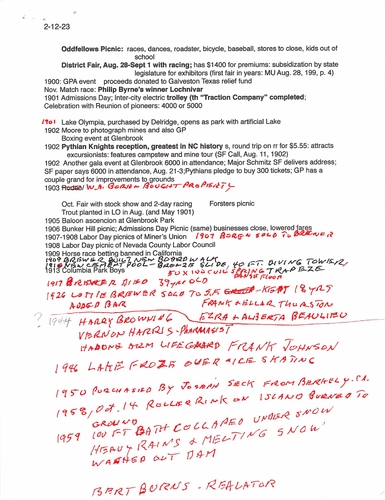 2-12-23
Oddfellows Picnic: races, dances, roadster, bicycle, baseball, stores to close, kids out of
school
District Fair, Aug. 28-Sept 1 with racing; has $1400 for premiums: subsidization by state
legislature for exhibitors (first fair in years: MU Aug. 28, 199, p. 4)
1900: GPA event proceeds donated to Galveston Texas relief fund
Nov. Match race: Philip Byrne's winner Lochnivar
1901 Admissions Day; Inter-city electric trolley (th "Traction Company" completed;
Celebration with Reunion of pioneers: 4000 or 5000
1901 Lake Olympia, purchased by Delridge, opens as park with artificial Lake
1902 Moore to photograph mines and also GP
Boxing event at Glenbrook
1902 Pythian Knights reception, greatest in NC history s, round trip on rr for $5.55: attracts
excursionists: features campstew and mine tour (SF Call, Aug. 11, 1902)
1902 Another gala event at Glenbrook 6000 in attendance; Major Schmitz SF delivers address;
SF paper says 6000 in attendance, Aug. 21-3;Pythians pledge to buy 300 tickets; GP has a
couple grand for improvements to grounds
1903 Rodeo/ W.A. BORGN BOUGHT PROPERTY
Oct. Fair with stock show and 2-day racing Foresters picnic
Trout planted in LO in Aug. (and May 1901)
1905 Baloon ascension at Glenbrook Park
1906 Bunker Hill picnic; Admissions Day Picnic (same) businesses close, lowered fares
1907-1908 Labor Day picnics of Miner's Union 1907 BORGN SOLD TO BREWER
1908 Labor Day picnic of Nevada County Labor Council
1909 Horse race betting banned in California
1909 BREWER BUILT NEW BOARDWALK
1910 NEW CEMENT POOL - BRONZE SLIDE, 40 FT. DIVING TOWER
1913 Columbia Park Boys 50 X 100 COIL SPRING TRAPEZE
DANCE FLOOR
1917 BREWER DIED 39 YRS OLD
1926 LOTTIE BREWER SOLD TO J.F. KEPT 18 YRT
ADDED BAR FRANK & ELLAR THURSTON
? 1944 HARRY BROWN &G EZRA & ALBERTA BEAULIEU
VERNON HARRIS - PHARMASIST
HADONE ARM LIFEGUARD FRANK JOHNSON
1946 LAKE FROZE OVER & ICE SKATING
1950 PURCHASED BY JOSEPH SECK FROM BERKELY, CA.
1958, Oct. 14 ROLLER RINK ON ISLAND BURNED TO
GROUND
1959 100 FT BATH COLLAPED UNDER SNOW
HEAVY RAINS & MELTING SNOW
WASHED OUT DAM
BERT BURNS - REALATOR